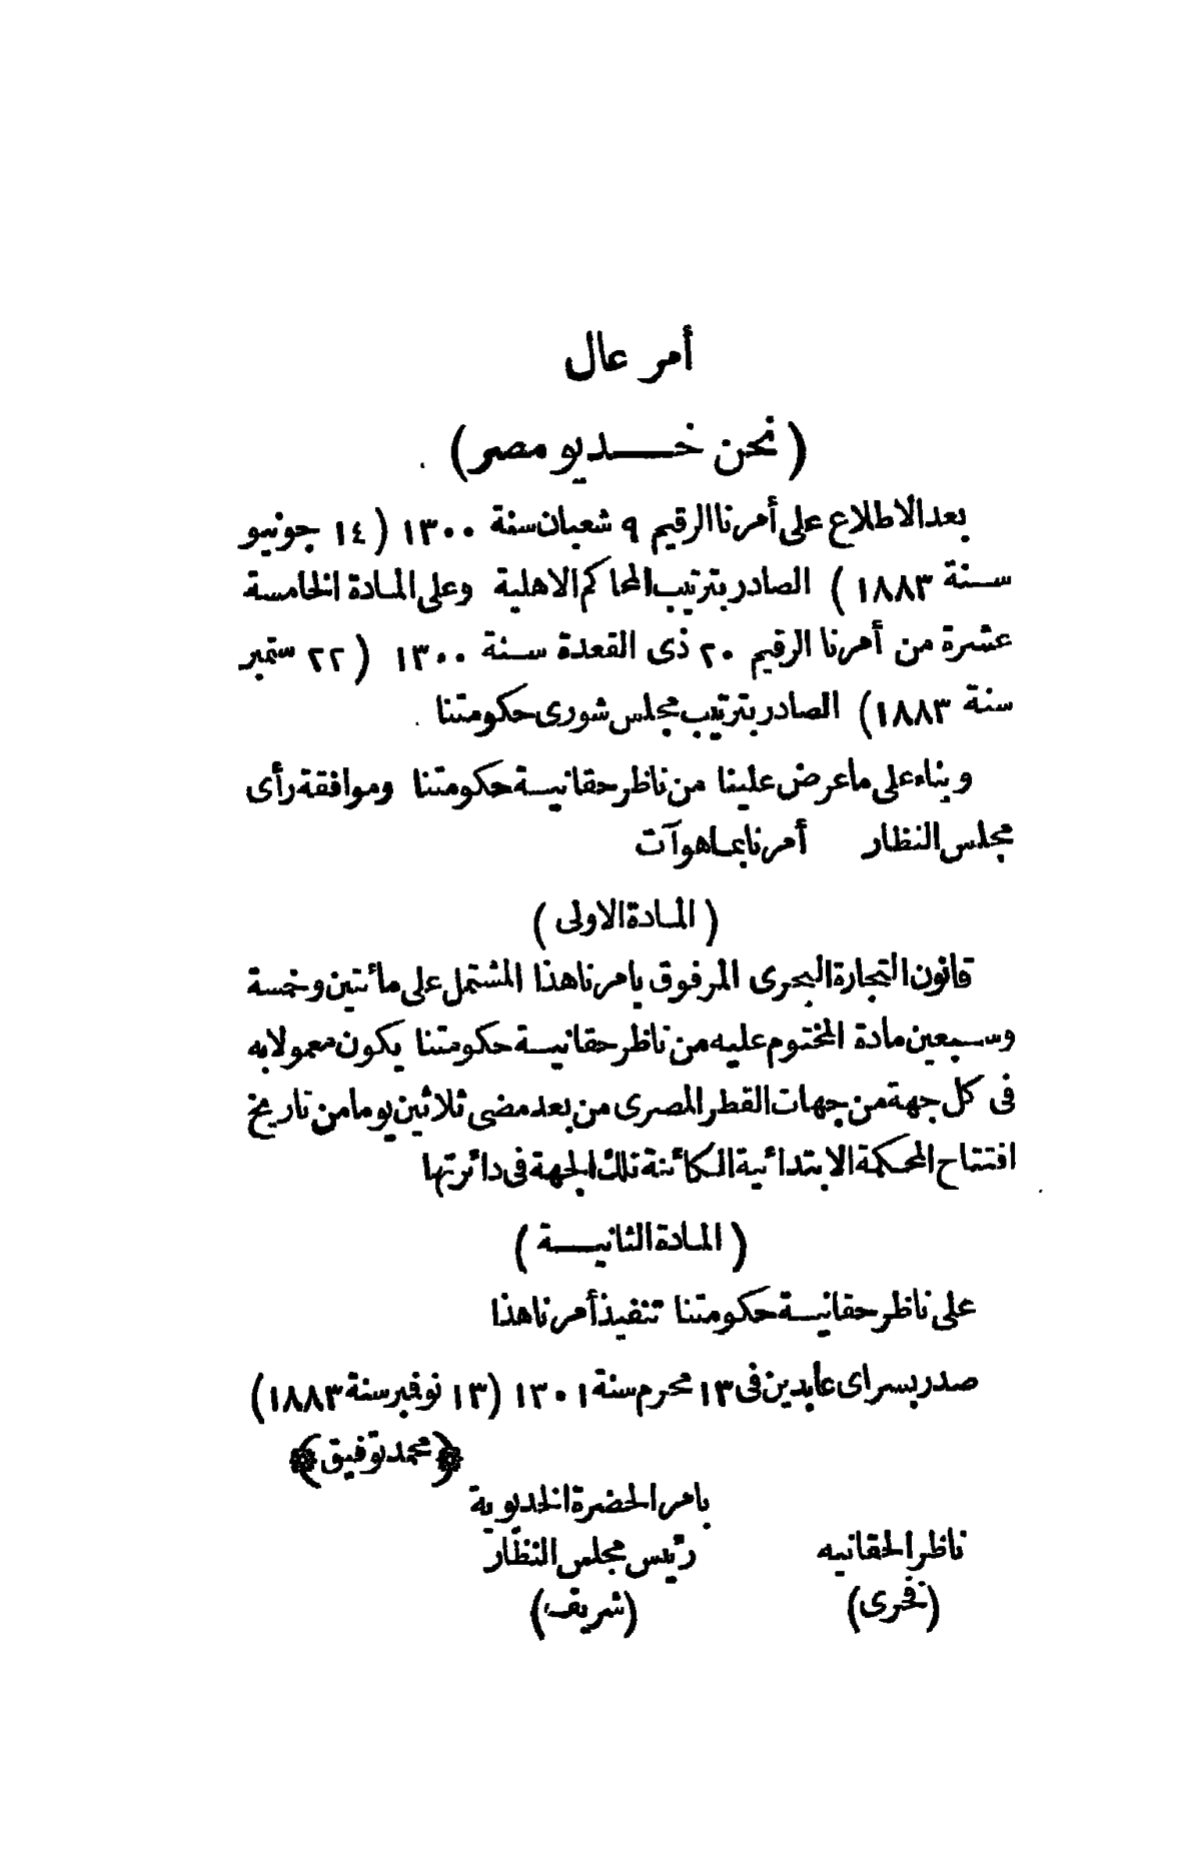 أمر عال
(نحن خديو مصر)
بعد الاطلاع على أمرنا الرقيم ٩ شعبان سنة ١٣٠٠ (١٤ جونيو
سنة ١٨٨٣) الصادر بترتيب المحاكم الاهلية وعلى المادة الخامسة
عشرة من أمرنا الرقيم ٢٠ ذى القعدة سنة ١٣٠٠ (٢٢ ستمبر
سنة ١٨٨٣) الصادر بترتيب مجلس شورى حكومتنا
وبناء على ما عرض علينا من ناظر حقانية حكومتنا وموافقة رأى
مجلس النظار أمرنا بما هو آت
(المادة الاولى)
قانون التجارة البحرى المرفوق بامرنا هذا المشتمل على مائتين وخمسة
وسبعين مادة المختوم عليه من ناظر حقانية حكومتنا يكون معمولا به
فى كل جهة من جهات القطر المصرى من بعد مضى ثلاثين يوما من تاريخ
افتتاح المحكمة الابتدائية الكائنة تلك الجهة فى دائرتها
(المادة الثانية)
على ناظر حقانية حكومتنا تنفيذ أمرنا هذا
صدر بسراى عابدين فى ١٣ محرم سنة ١٣٠١ (١٣ نوفمبر سنة ١٨٨٣)
(محمد توفيق)
بامر الحضرة الخديوية
ناظر الحقانيه رئيس مجلس النظّار
(فخرى) (شريف)